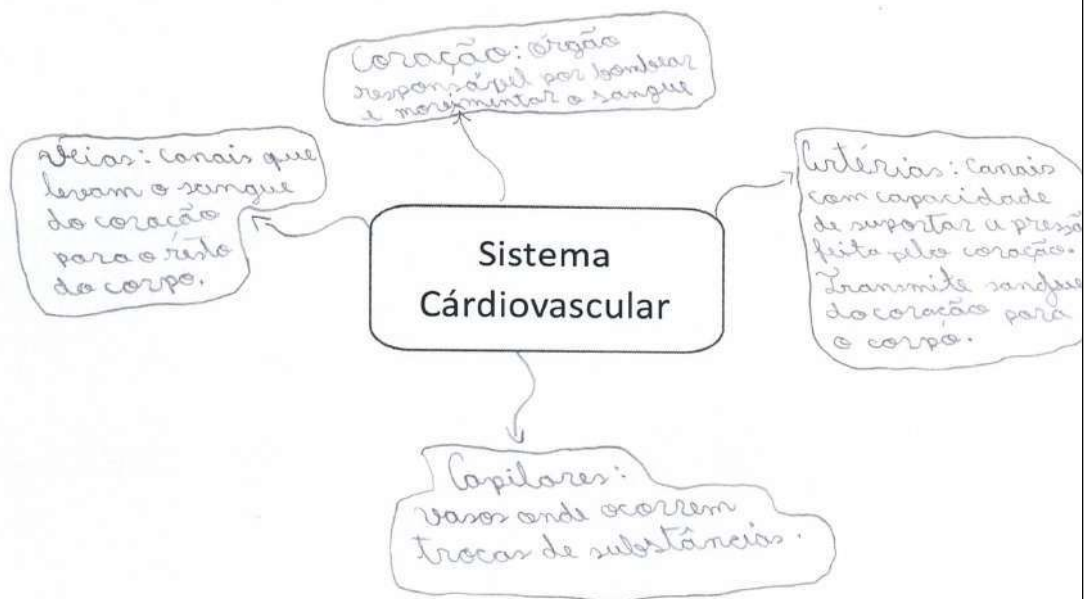 Coração: órgão
responsável por bombear
e movimentar o sangue
Veias: canais que
levam o sangue
do coração
para o resto
do corpo.
Sistema
Cárdiovascular
Artérias: canais
com capacidade
de suportar a pressã
feita pelo coração.
Transmite sangue
do coração para
o corpo.
Capilares:
vasos onde ocorrem
trocas de substâncias.